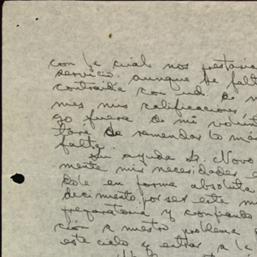 con la cual nos prestaria
servicio. aunque se falt
contraida con ud. de n
mis mis calificaciones
go fuera de mi volunt
tara de remendar lo más
falta.
Sin ayuda Sr. Novo
mente mis necesidades
dole en forma absoluta
decimiento, por ser este mi
preparatoria y confiando
ción a nuestro problema
este ciclo y entrar a la